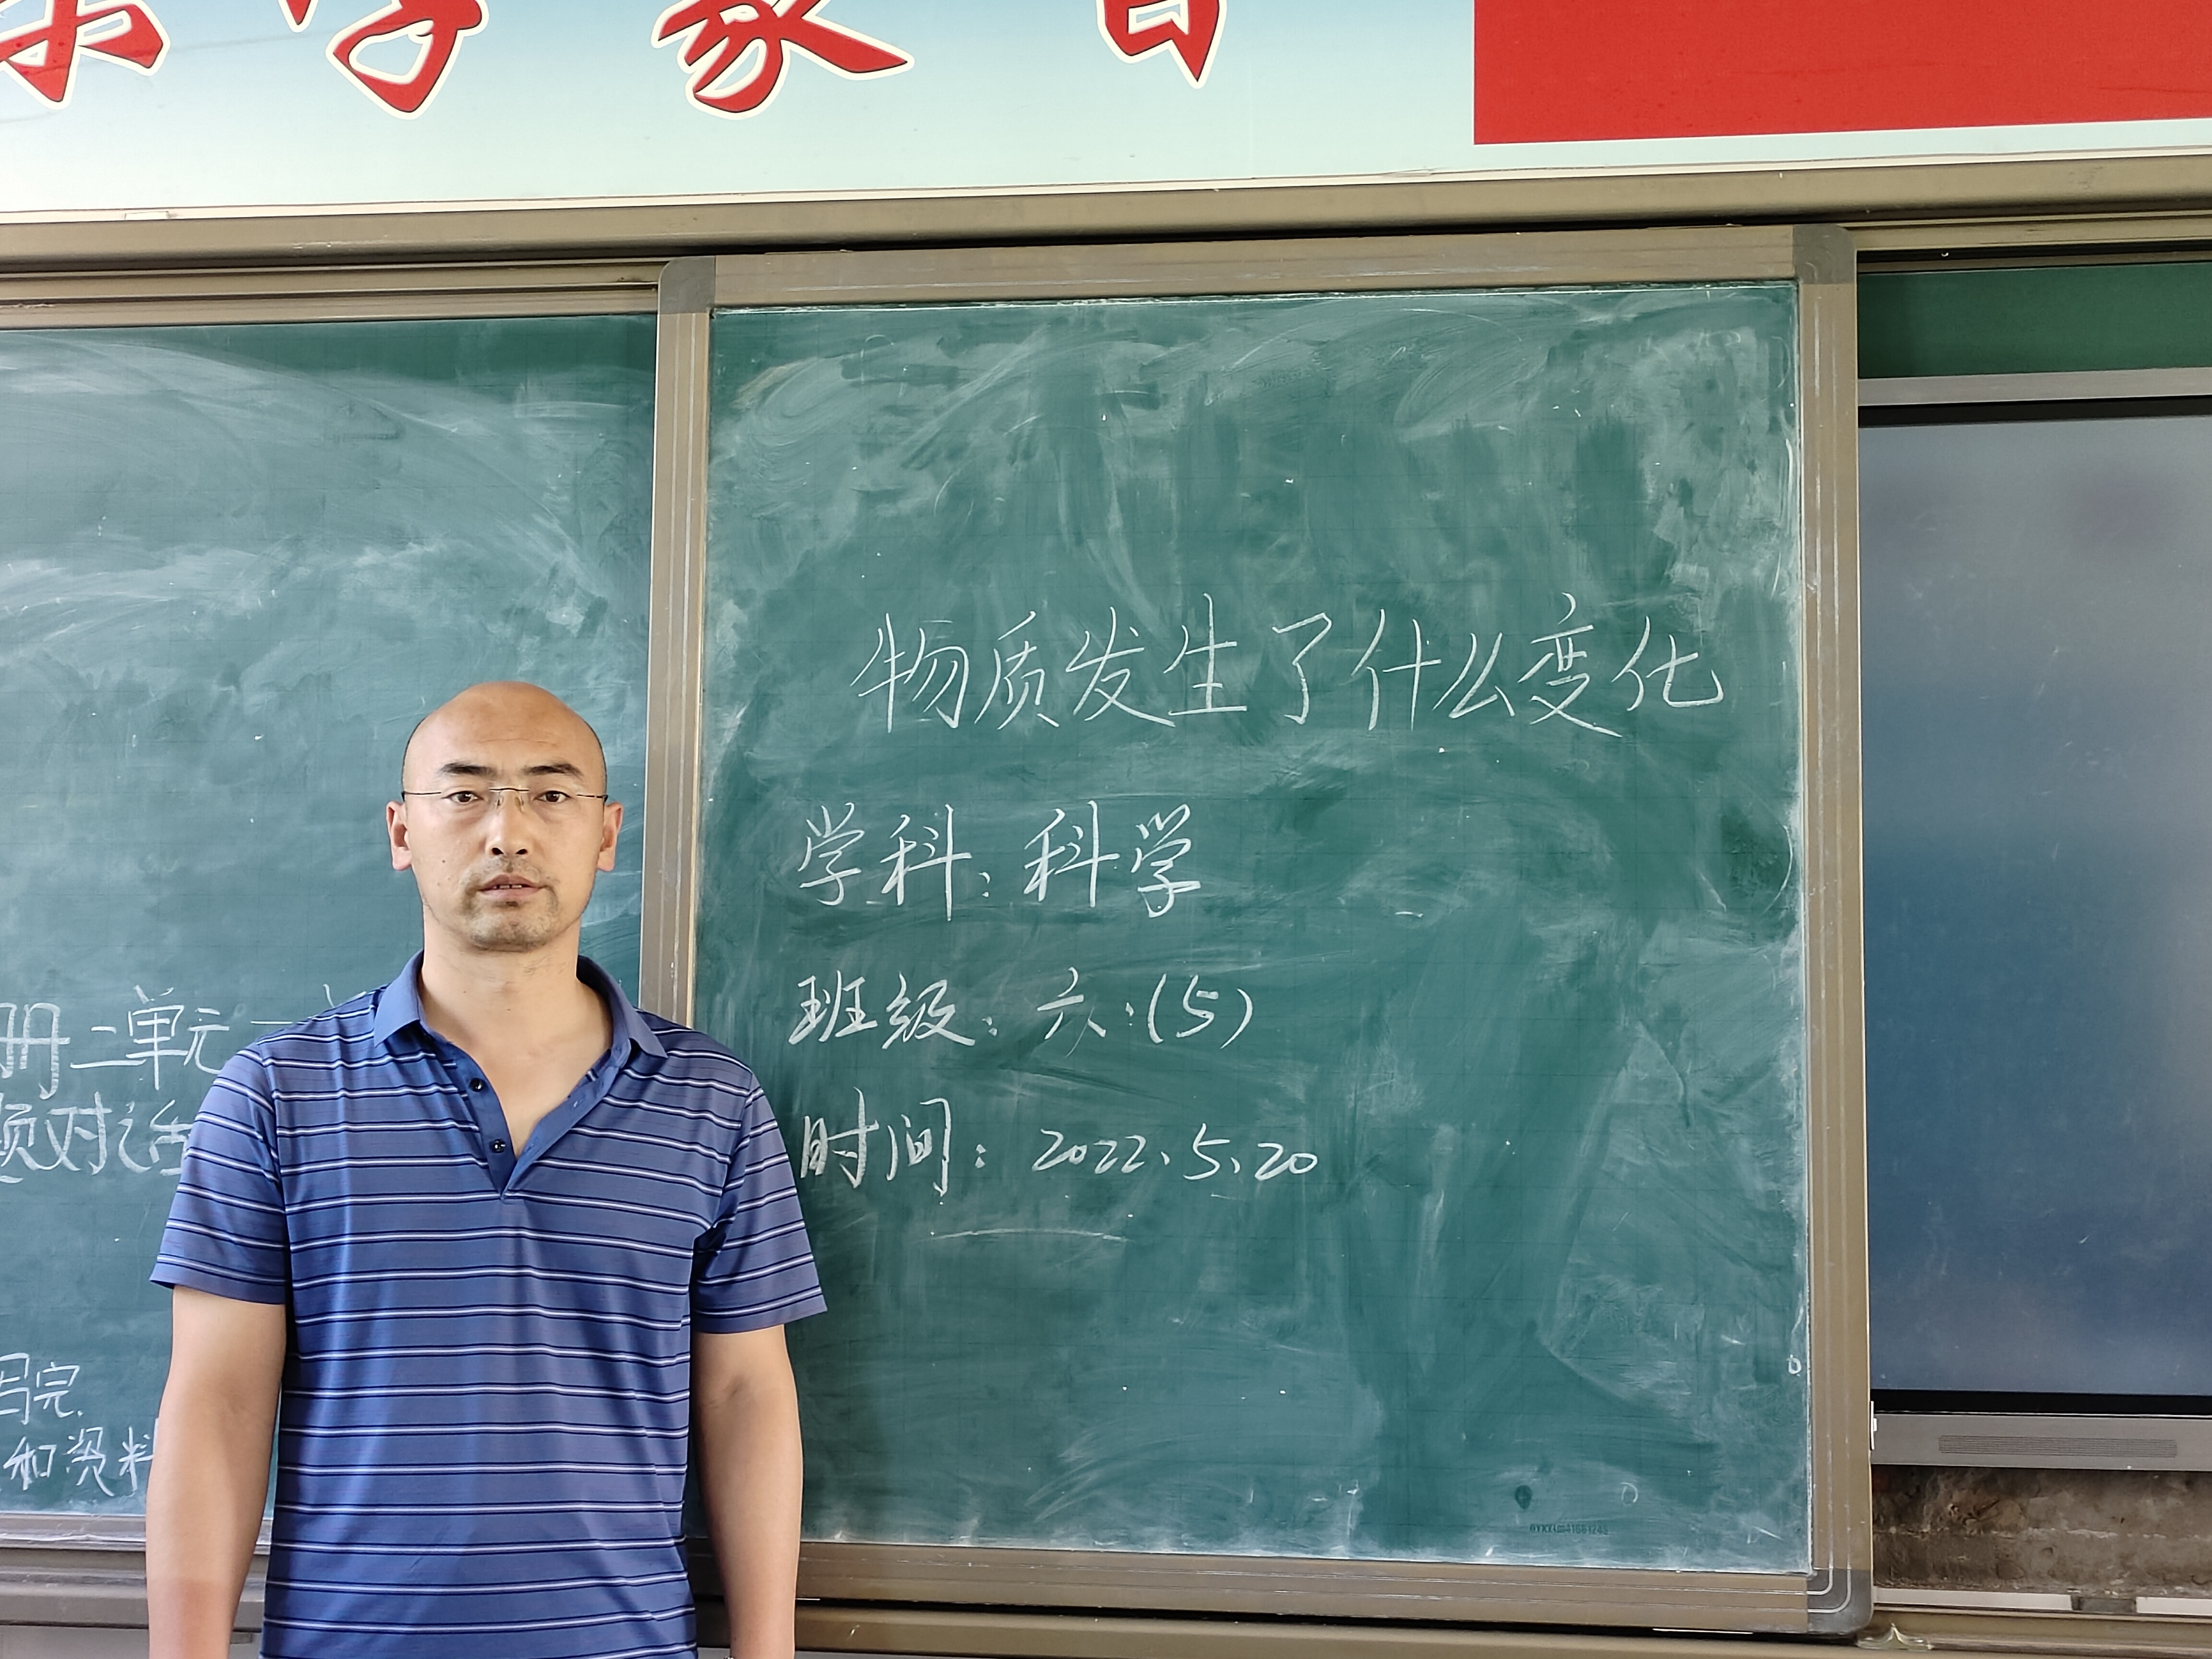 物质发生了什么变化
学科：科学
班级：六.(5)
时间：2022.5.20
册二单元一
对话
完.
和资料